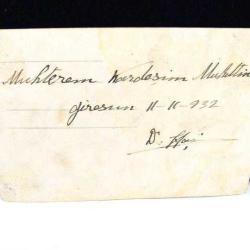 Muhterem Kardeşim Muhittin
Giresun 11-11-932
Dr.